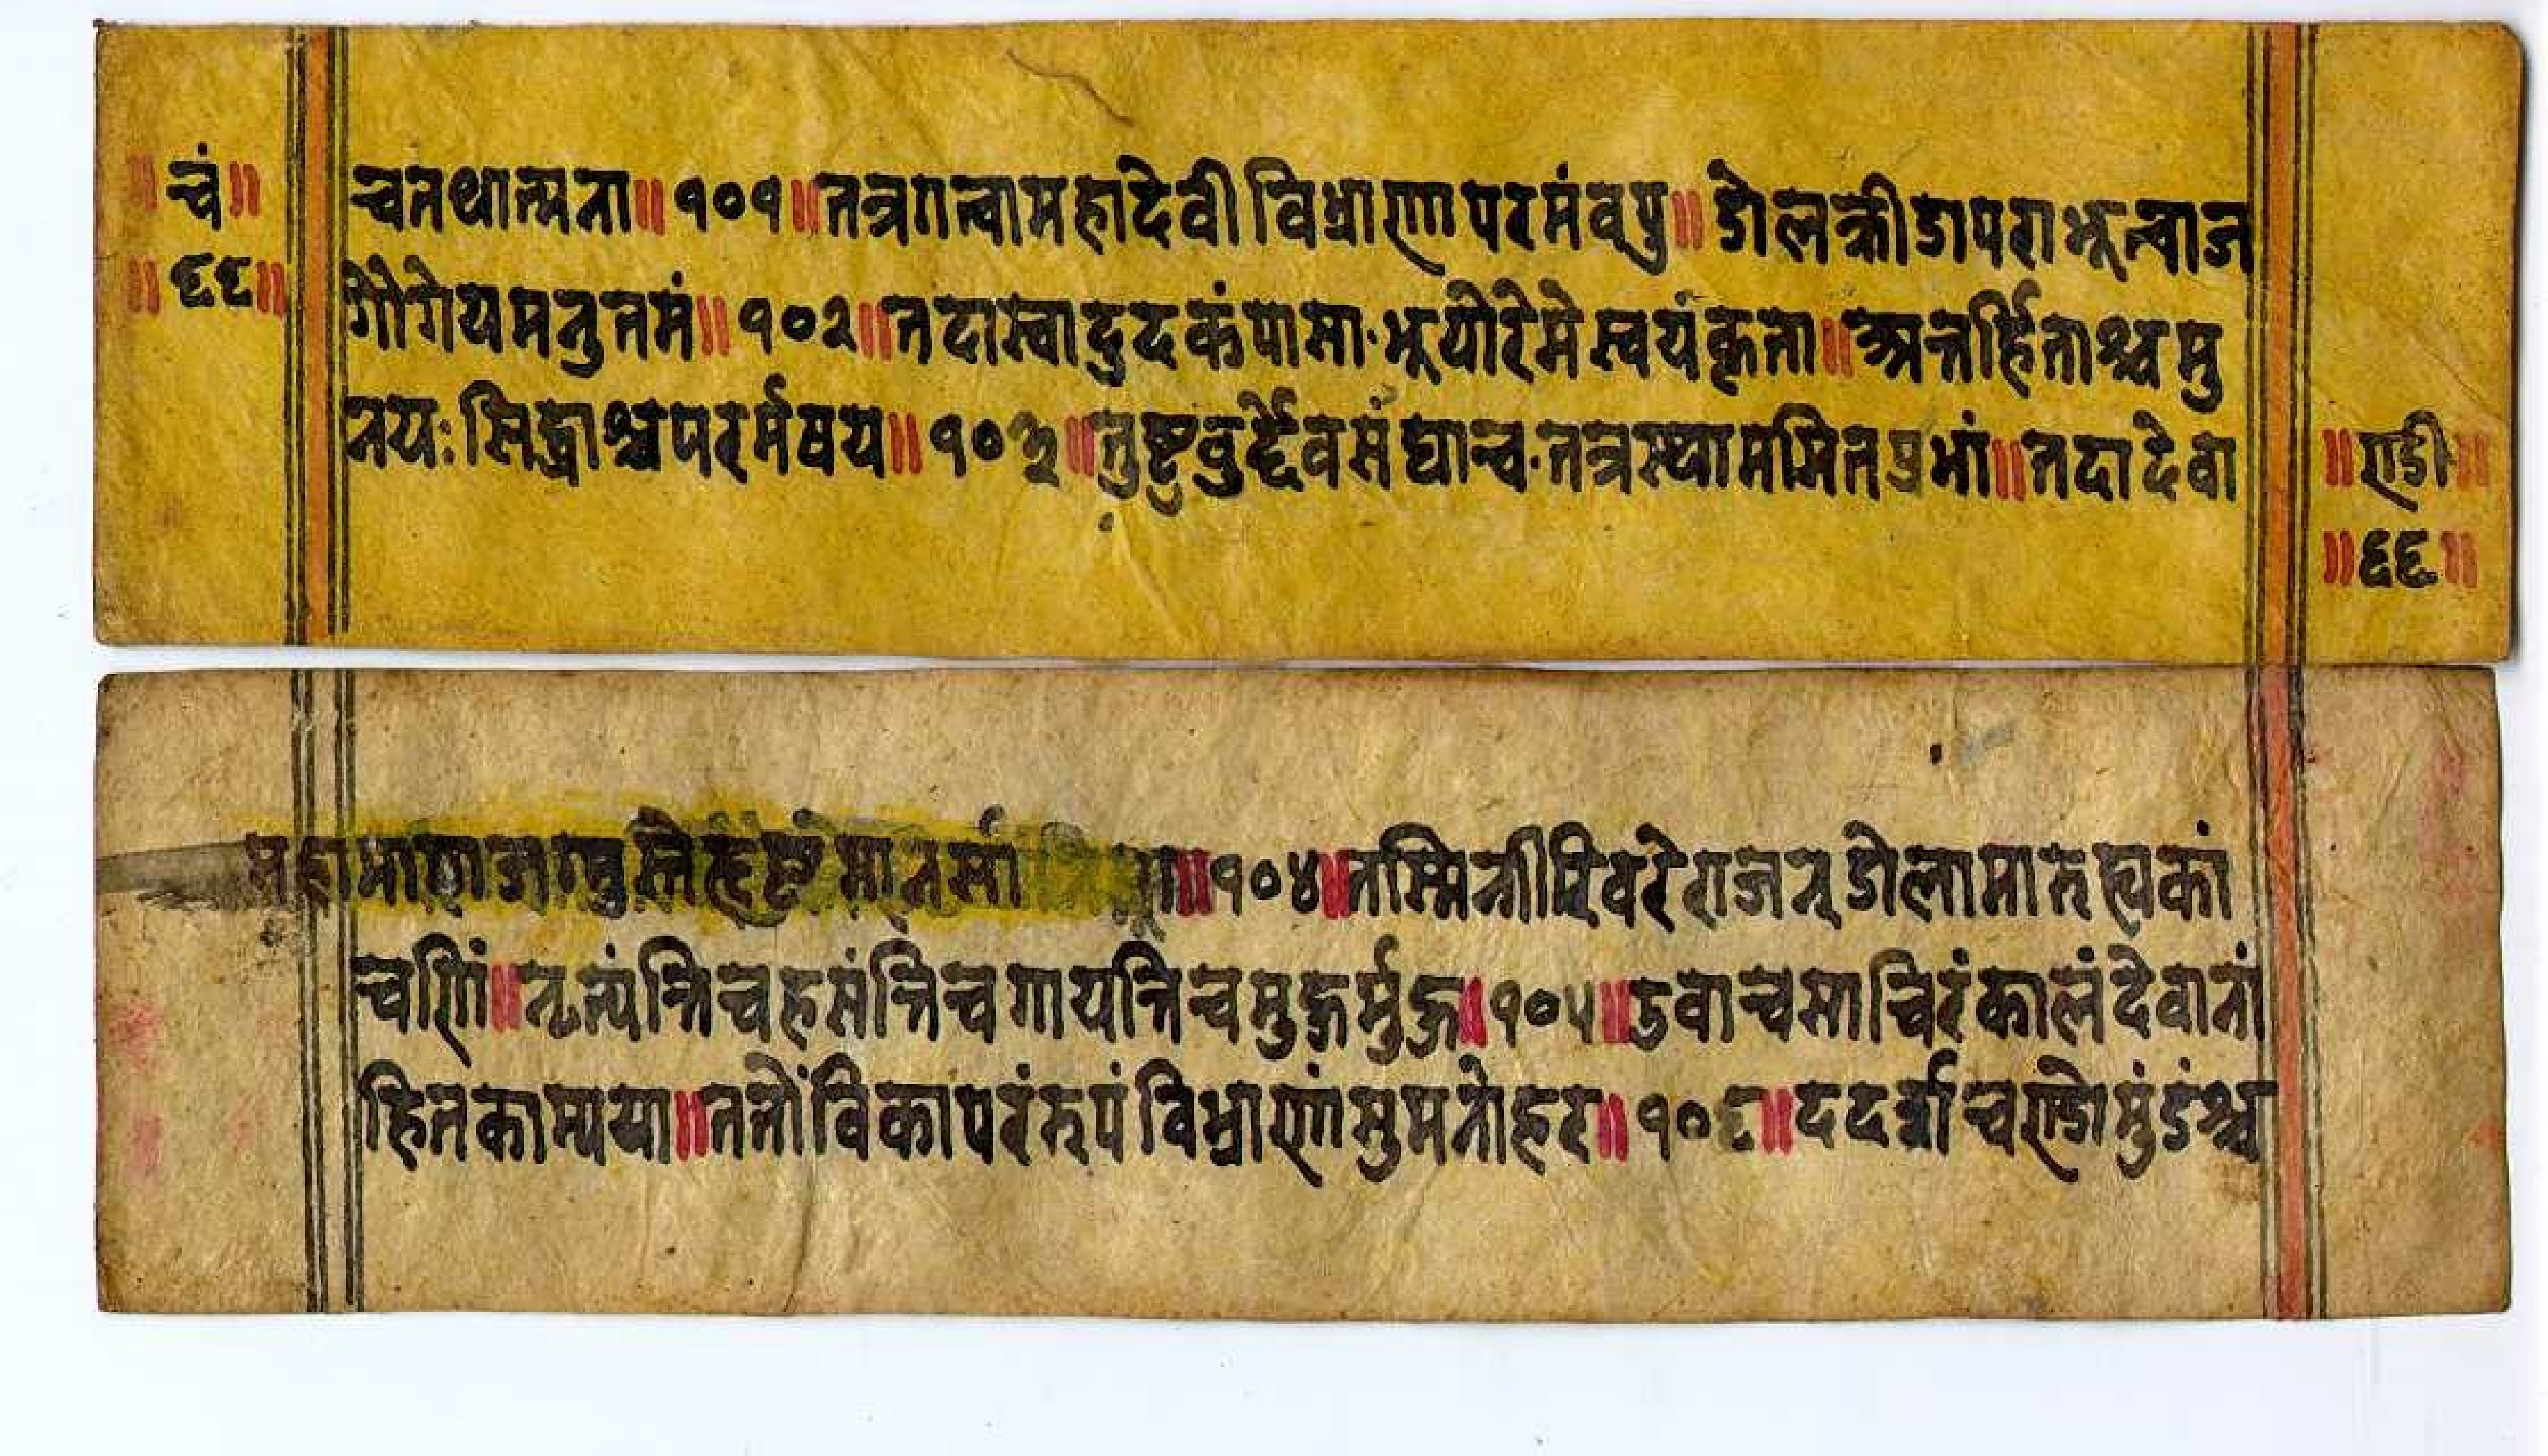 ॥ चं॥
॥ ६६॥
चतथात्मना॥ १०१॥तत्रगत्वामहादेवी विभ्राणा परमंवपु॥ डोलक्रीडापराभूत्वाज
गौगेयमनुतमं॥ १०२॥तदास्वादुदकंपासा·भूयोरेमे स्वयंकृता॥अन्तर्हिताश्च मु
नयः सिद्धाश्चपरर्मषय॥ १०३॥तुष्टुवुर्द्देवसंघान्च·तत्रस्थाममितप्रभां॥तदादेवा
॥ण्डी॥
॥६६॥
महाभागाजग्मुस्तेहृष्टमानसा ॥१०४॥तस्मिन्गीरिवरेराजन् डोलामारुह्यकां
चणिं॥नृत्यंन्तिचहसंन्तिच गायन्तिचमुहुर्मुहु॥१०५॥उवाचसाचिरंकालंदेवानां
हितकाम्यया॥ततोंविकापरंरुपं विभ्राणांसुमनोहर॥ १०६॥ददर्शाचण्डोमुंडंश्च